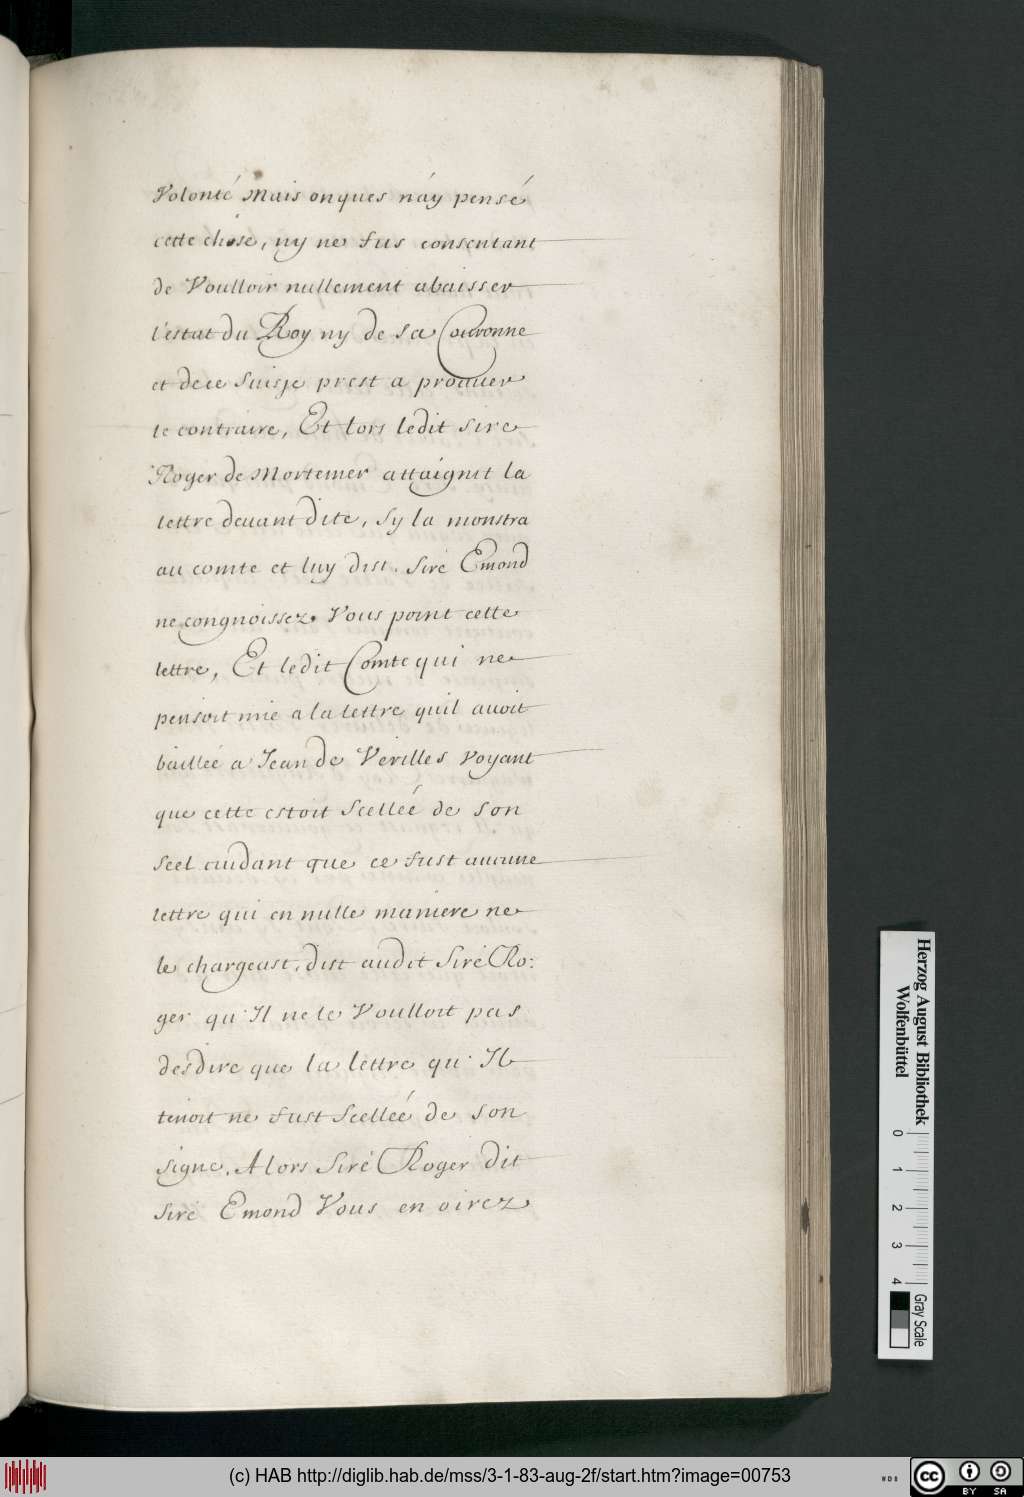 Volonté Mais onques náy pensé
cette chose, ny ne fus consentant
de Voulloir nullement abaisser
l'estat du Roy ny de sa Couronne
et de ce suisje prest a prouuer
le contraire, Et lors ledit sire
Roger de Mortemer attaignit la
lettre deuant dite, sy la monstra
au comte et luy dist. Siré Emond
ne congnoissez Vous point cette
lettre, Et ledit Comte qui ne
pensoit mie a la lettre quil auoit
baillée a Jean de Verilles voyant
que cette estoit Scelleé de son
Scel cuidant que ce fust aucune
lettre qui en nulle maniere ne
le chargeast, dist audit Siré Ro:
ger qu'Il ne le Voulloit pas
desdire que la lettre qu'Il
tenoit ne fust Scelleé de son
signe. Alors Siré Roger dit
Siré Emond Vous en oirez
Herzog August Bibliothek
Wolfenbüttel
0 1 2 3 4
Gray Scale
(c) HAB http://diglib.hab.de/mss/3-1-83-aug-2f/start.htm?image=00753
WDB
cc BY SA